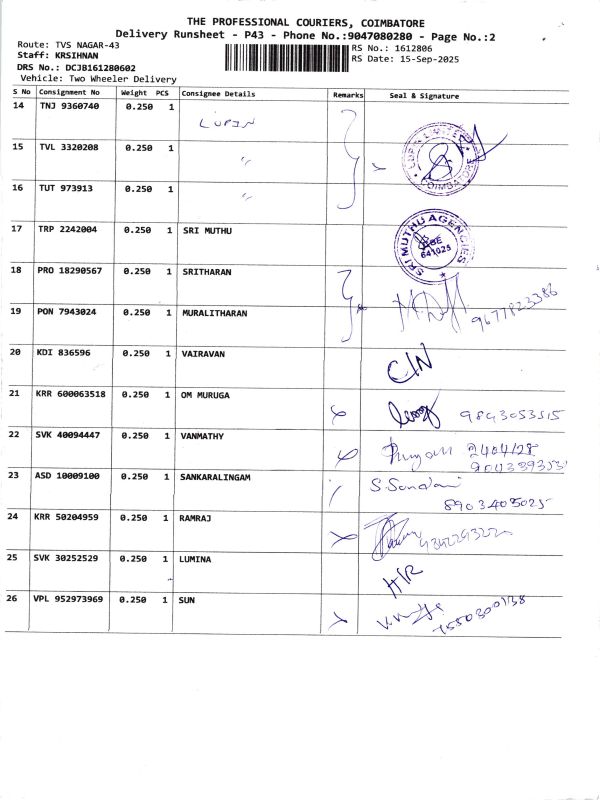 THE PROFESSIONAL COURIERS, COIMBATORE
Delivery Runsheet - P43 - Phone No.:9047080280 - Page No.:2
Route: TVS NAGAR-43
RS No.: 1612806
Staff: KRSIHNAN
RS Date: 15-Sep-2025
DRS No.: DCJB161280602
Vehicle: Two Wheeler Delivery
S No Consignment No Weight PCS Consignee Details Remarks Seal & Signature
14 TNJ 9360740 0.250 1 LUPIN
15 TVL 3320208 0.250 1 "
LUPIN LIMITED COIMBATORE
16 TUT 973913 0.250 1 "
17 TRP 2242004 0.250 1 SRI MUTHU
SRI MUTHU AGENCIES CBE 641025
18 PRO 18290567 0.250 1 SRITHARAN
19 PON 7943024 0.250 1 MURALITHARAN
9677823386
20 KDI 836596 0.250 1 VAIRAVAN
C/N
21 KRR 600063518 0.250 1 OM MURUGA
9843053515
22 SVK 40094447 0.250 1 VANMATHY
23 ASD 10009100 0.250 1 SANKARALINGAM
8903403025
24 KRR 50204959 0.250 1 RAMRAJ
25 SVK 30252529 0.250 1 LUMINA
H/R
26 VPL 952973969 0.250 1 SUN